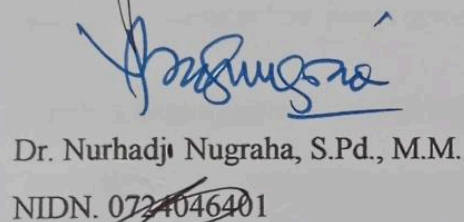 Dr. Nurhadji Nugraha, S.Pd., M.M.
NIDN. 0724046401